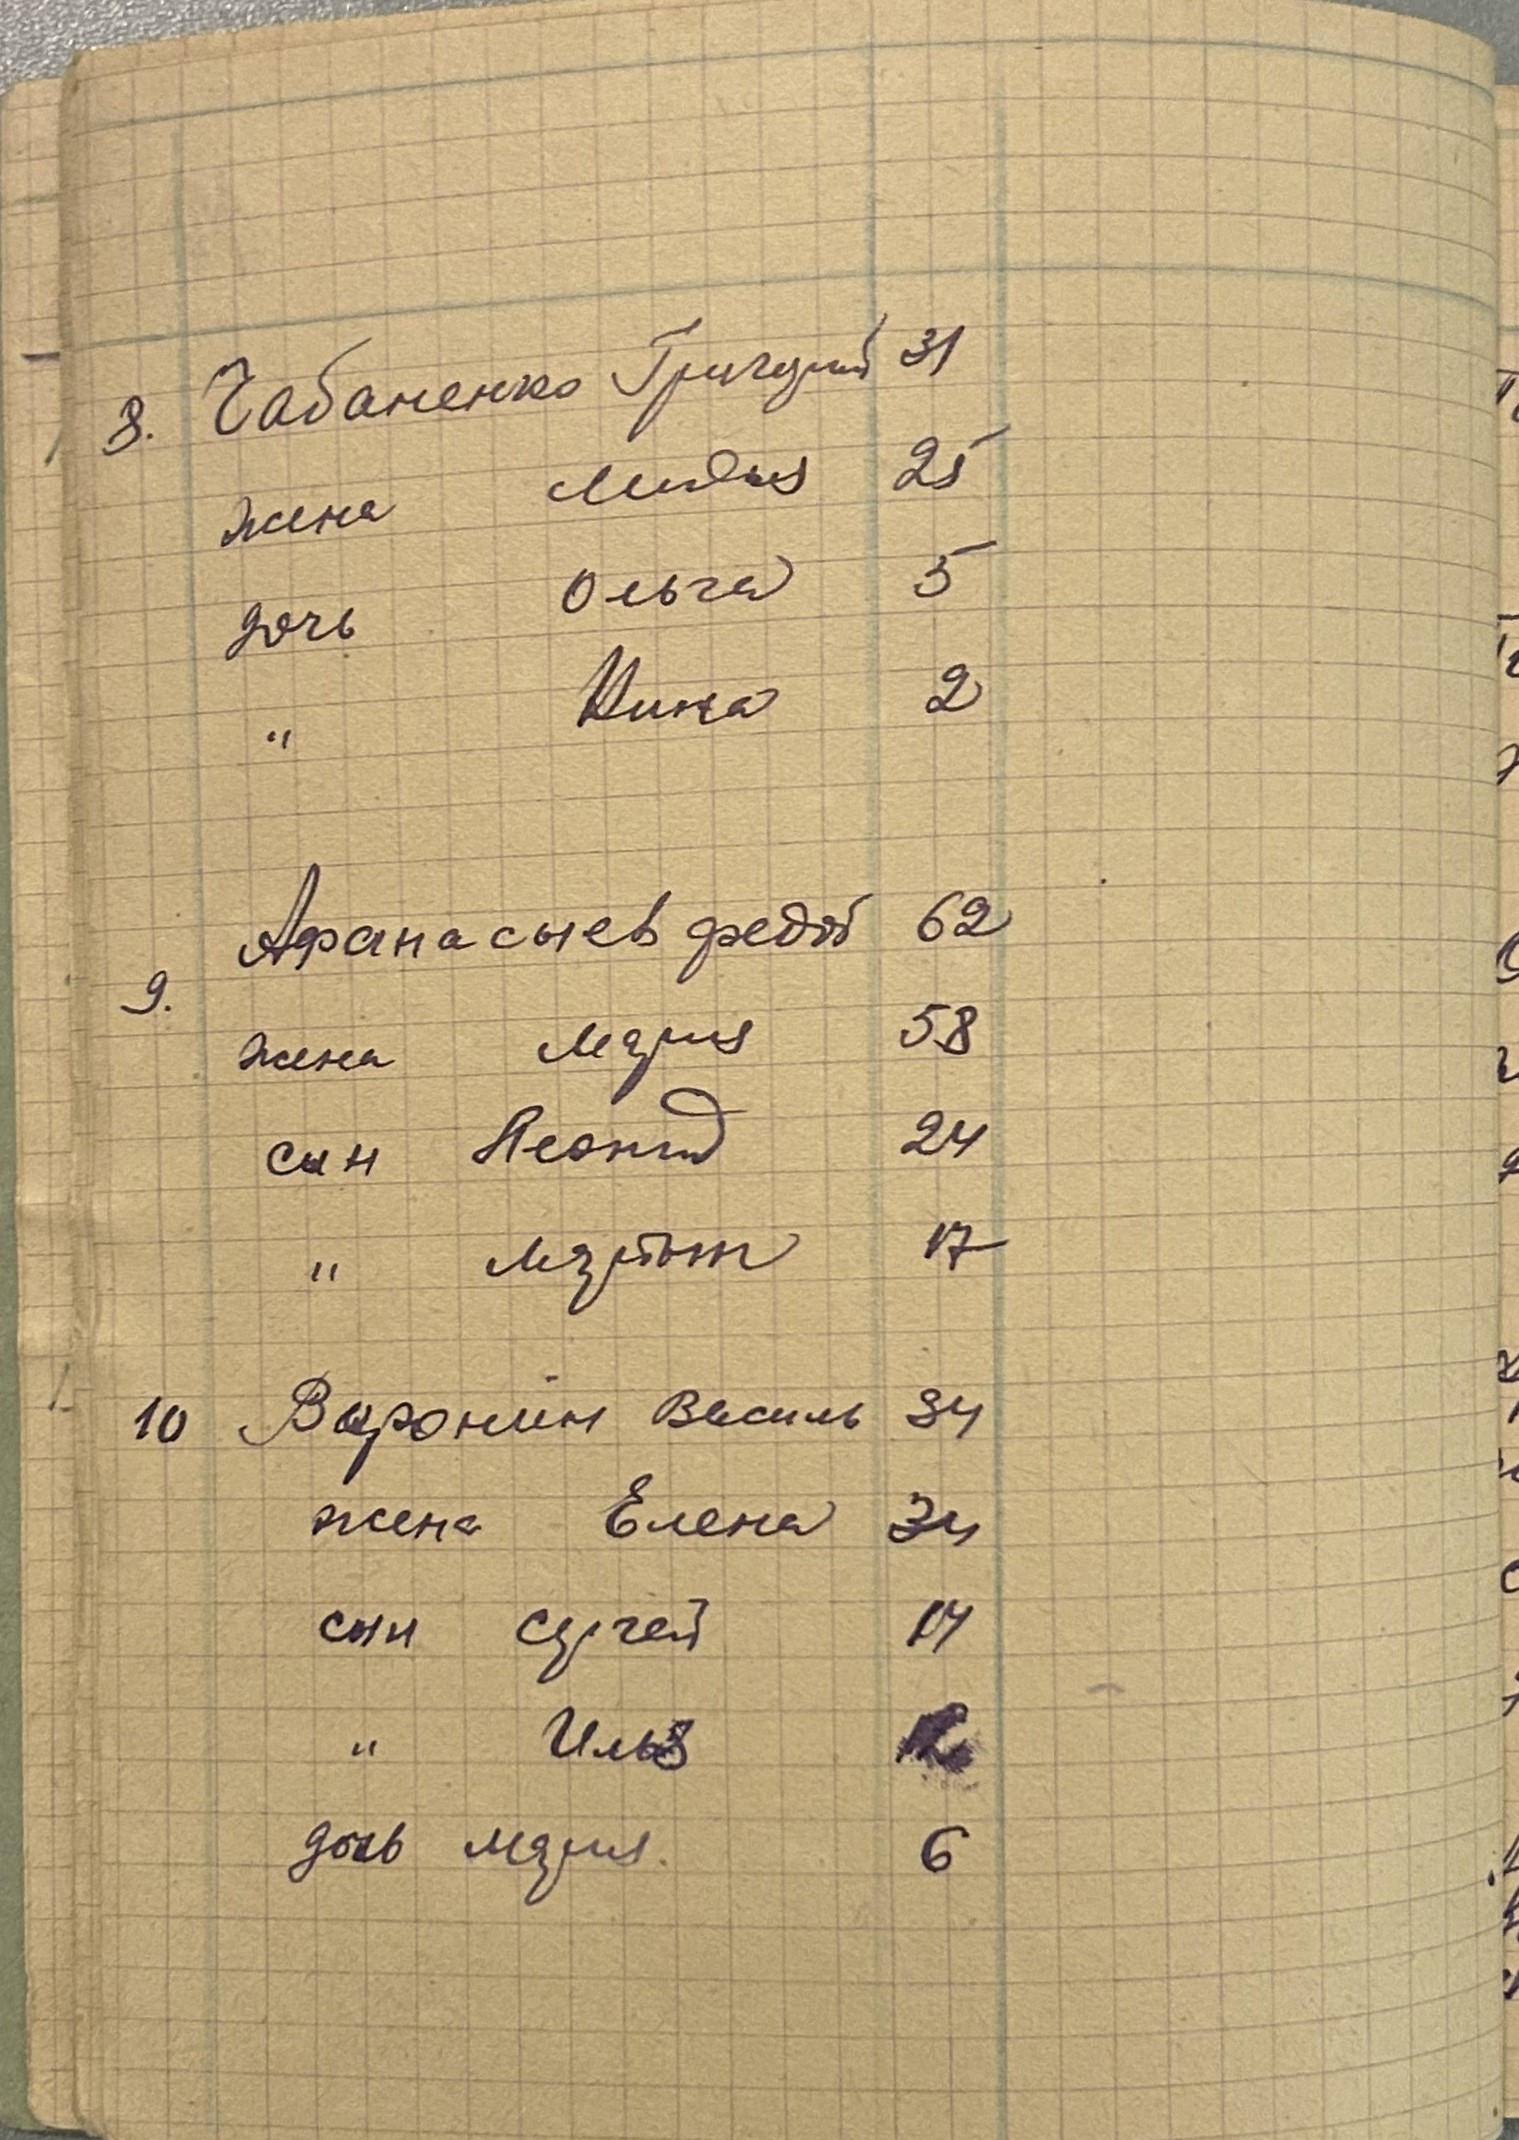 8. Чабаненко Григорий 31
жена Лидия 25
дочь Ольга 5
" Нина 2
Афанасыев Федот 62
9.
жена Мария 58
сын Леонид 24
" Мартын 17
10 Воронин Василь 34
жена Елена 34
сын Сергей 14
" Илья 12
дочь Мария. 6